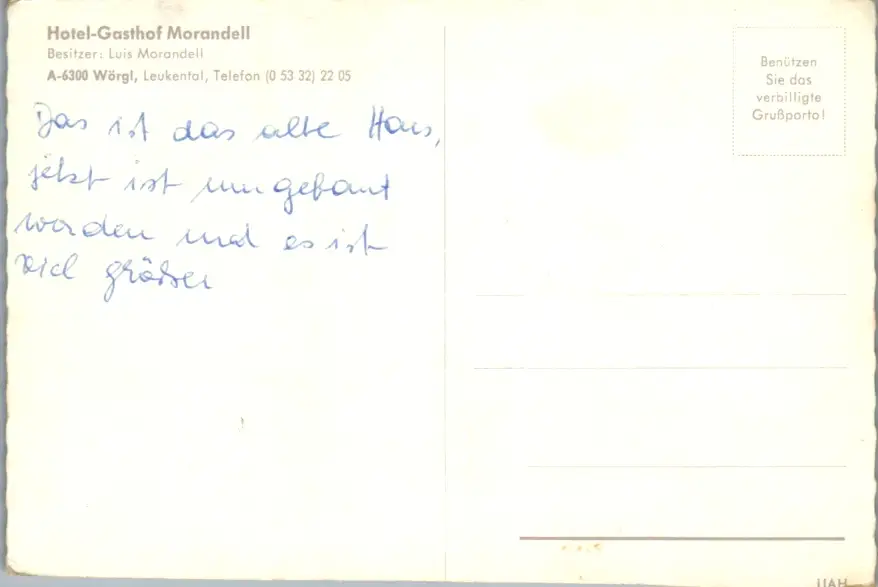 Hotel-Gasthof Morandell
Besitzer: Luis Morandell
A-6300 Wörgl, Leukental, Telefon (0 53 32) 22 05
Das ist das alte Haus,
jetzt ist umgebaut
worden und es ist
viel größer
Benützen
Sie das
verbilligte
Grußporto!